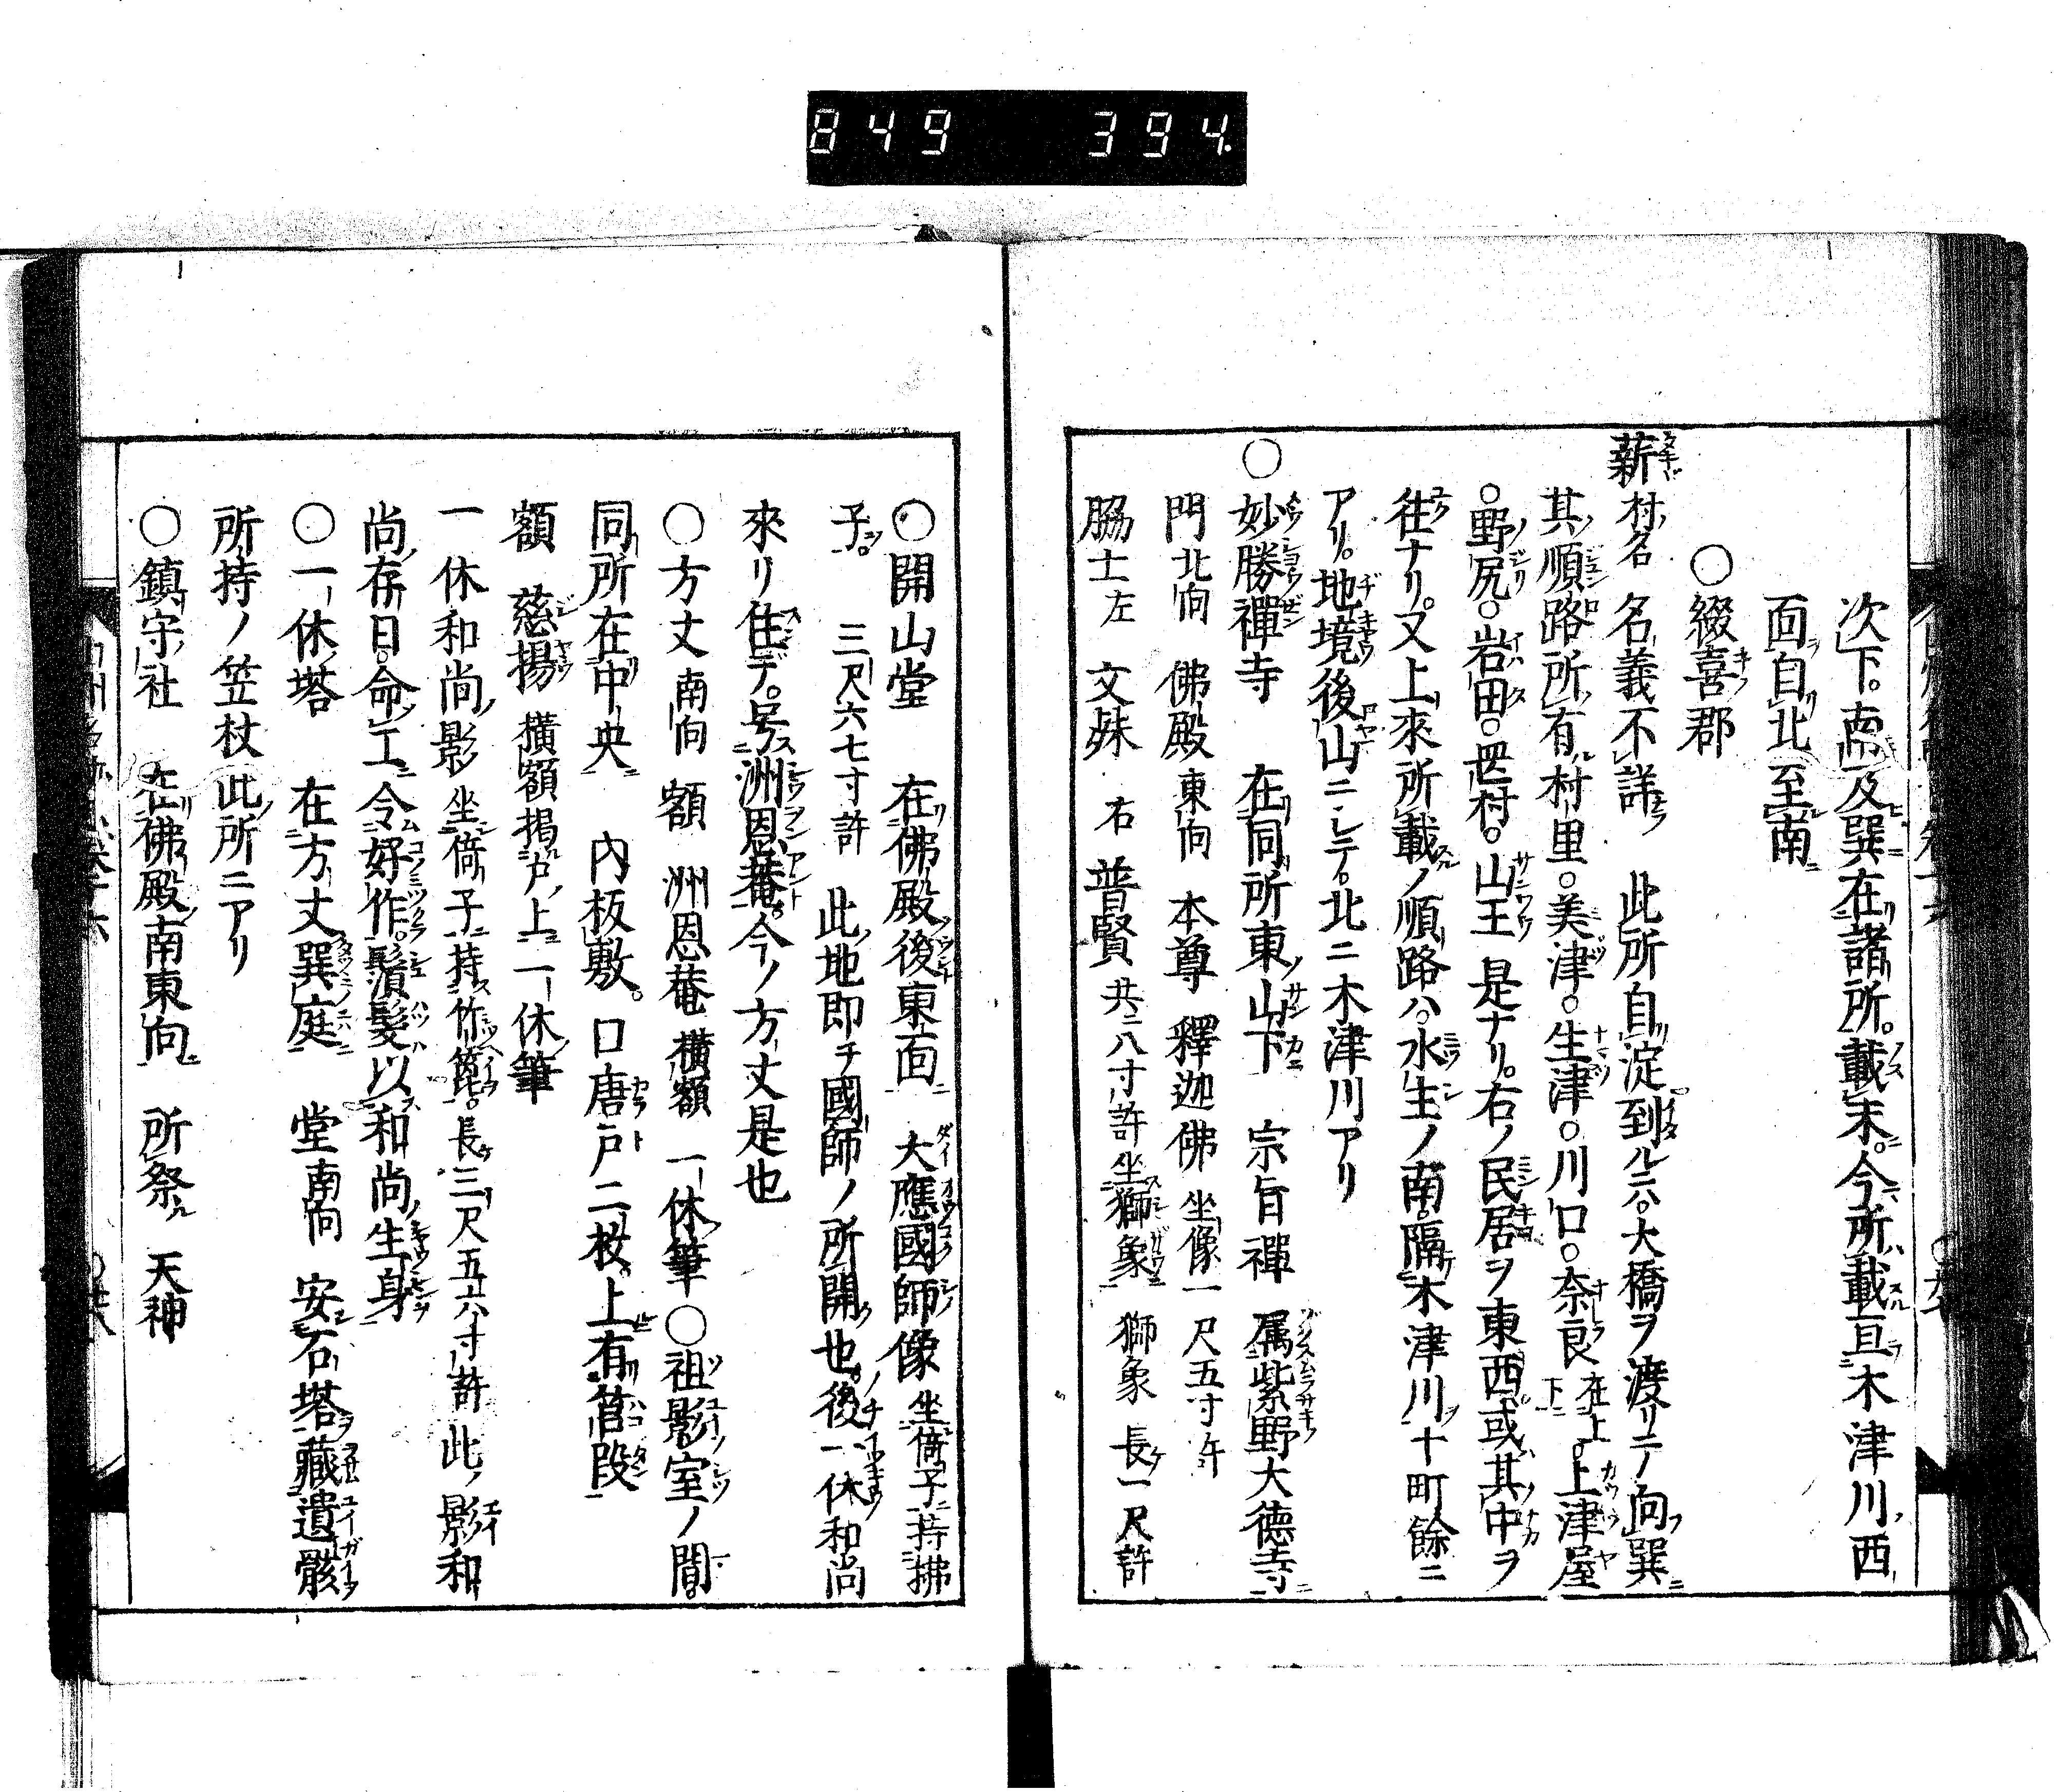 849 394
次下。南及巽在諸所。載末。今所載亘木津川西
面自北至南
○綴喜郡
薪 村名 名義不詳 此所自淀到ルニハ。大橋ヲ渡リニテ向巽
其順路所有村里。美津。生津。川口。奈良 在上下。上津屋
○野尻。岩田。四村。山王 是ナリ。右ノ民居ヲ東西或其中ヲ
往ナリ。又上來所載ノ順路ハ。水生ノ南。隔木津川十町餘ニ
アリ。地境後山ニシテ。北ニ木津川アリ
○妙勝禪寺 在同所東ノ山下 宗旨禪 属紫野大德寺
門 北向 佛殿 東向 本尊 釋迦佛 坐像一尺五寸許
脇士 左 文殊 右 普賢 共ニ八寸許坐獅象 獅象 長一尺許
○開山堂 在佛殿後東面 大應國師像 坐倚子持拂
子。 三尺六七寸許 此地即チ國師ノ所開也。後一休和尚
來リ住デ。号洲恩菴。今ノ方丈是也
○方丈 南向 額 洲恩菴 横額 一休筆 ○祖影室ノ間。
同所在中央 内板敷。口唐戸二枚。上有筥段
額 慈揚 横額掲戸ノ上 一休筆
一休和尚影 坐倚子持竹篦。長三尺五六寸許 此ノ影和
尚存日。命工令好作。鬚髮以和尚生身
○一休塔 在方丈巽庭 堂南向 安石塔藏遺骸
所持ノ笠杖此所ニアリ
○鎮守社 在佛殿南東向 所祭 天神